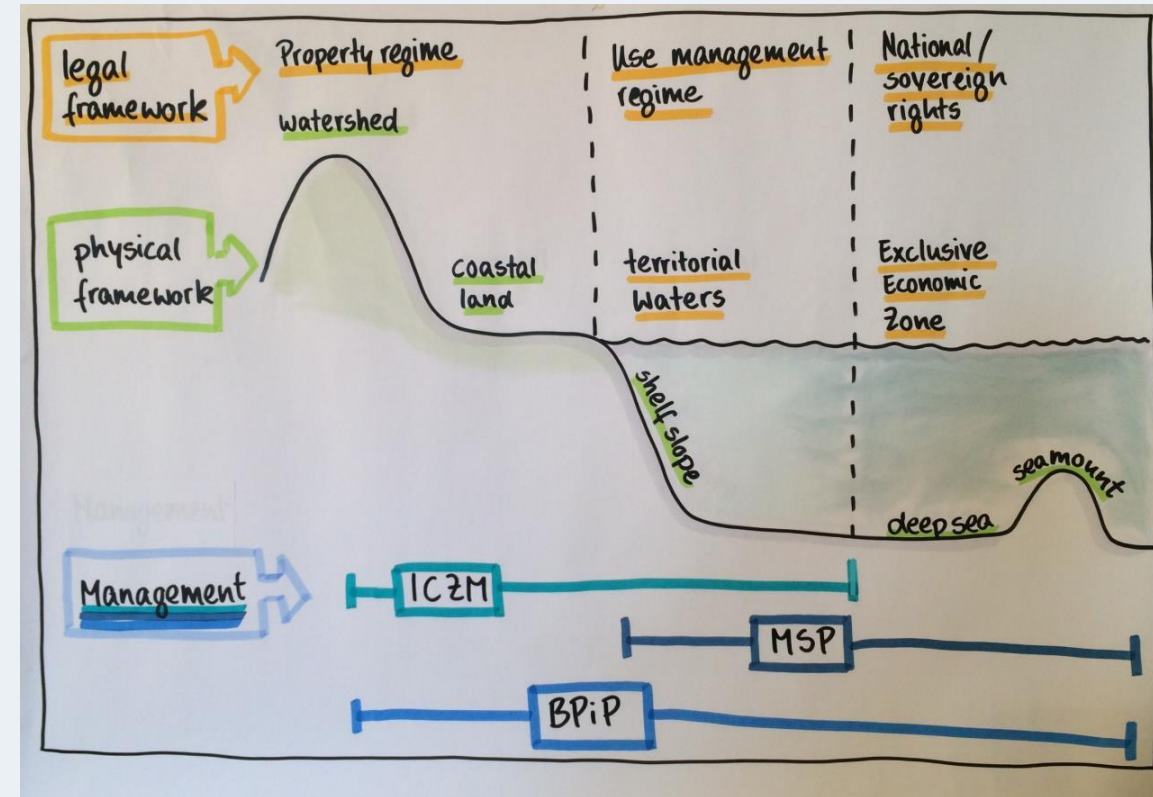 legal
framework
Property regime
Use management
regime
National/
sovereign
rights
watershed
physical
framework
coastal
land
territorial
Waters
Exclusive
Economic
Zone
shelf slope
seamount
deep sea
Management
Management
ICZM
MSP
BPiP